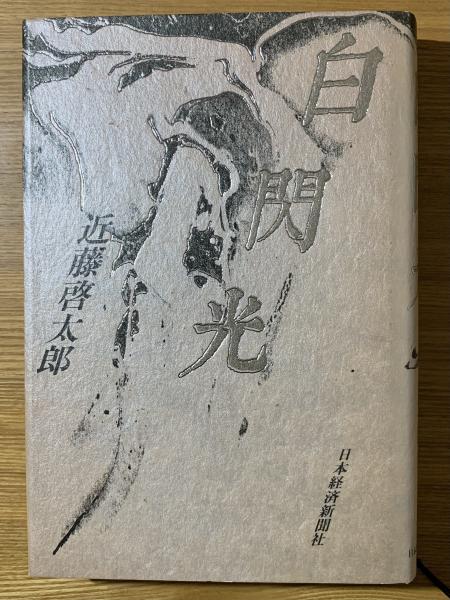 白閃光
近藤啓太郎
日本経済新聞社